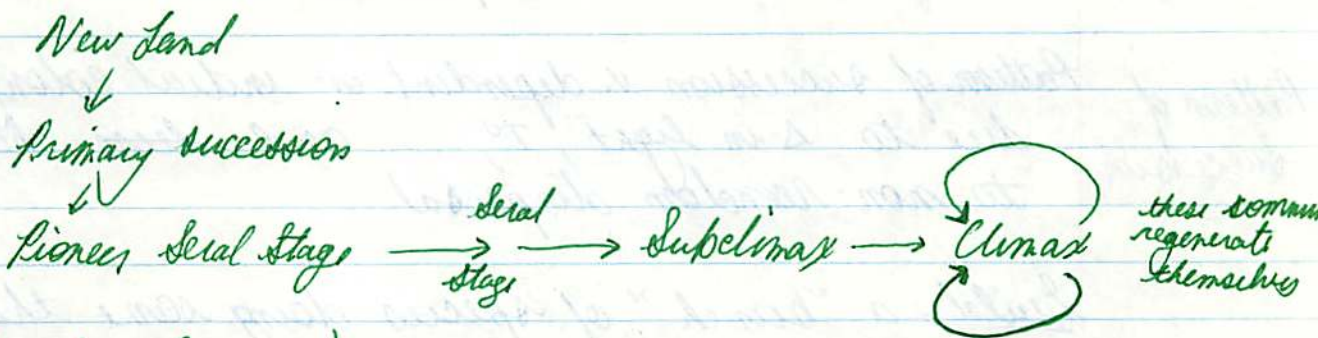 New Land
Primary succession
Pioneer Seral Stage
Seral
Stage
Subclimax
Climax
these commun
regenerate
themselves